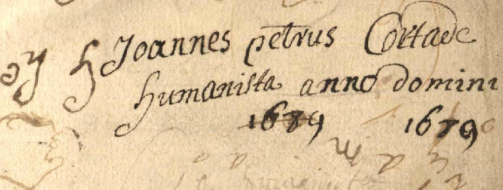 Joannes petrus Cortade
humanista anno domini
1679 1679